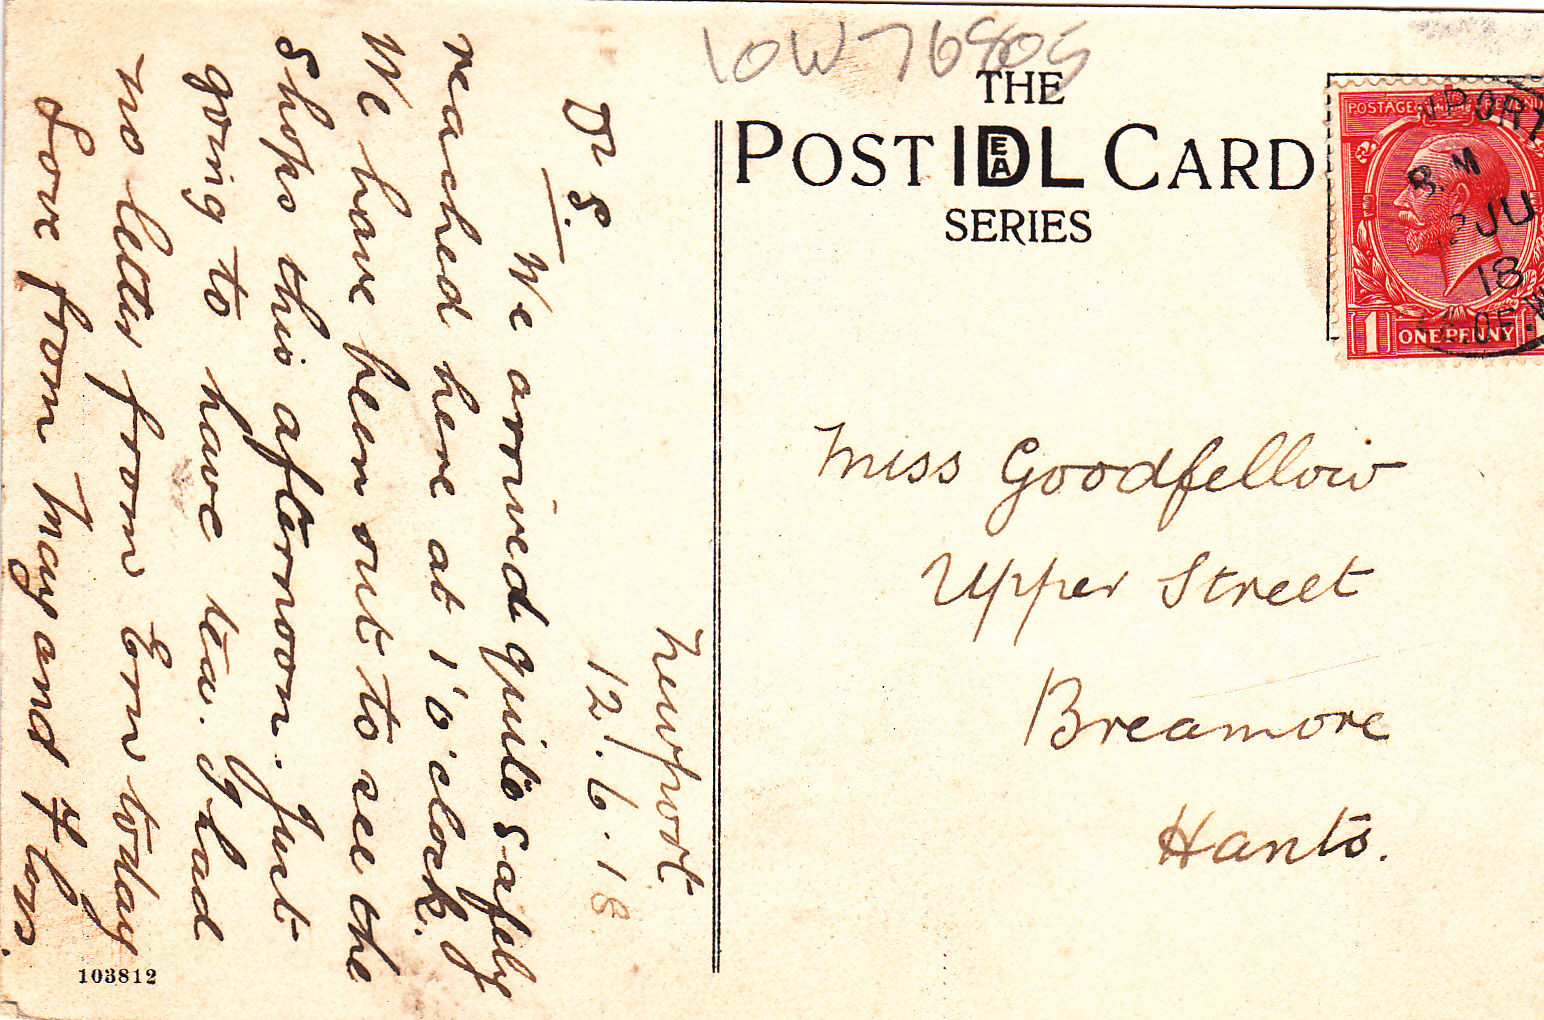 IOW 76805
THE
POST IDEAL CARD
SERIES
POSTAGE
NPORT
8. M
12 JU
18
OF. W
1 ONE PENNY
Newport
12.6.18
Dr S.
We arrived quite safely
reached here at 1 o'clock.
We have been out to see the
Shops this afternoon. Just
going to have tea. I had
no letter from Ern today
Love from May and Flos.
Miss Goodfellow
Upper Street
Breamore
Hants.
103812